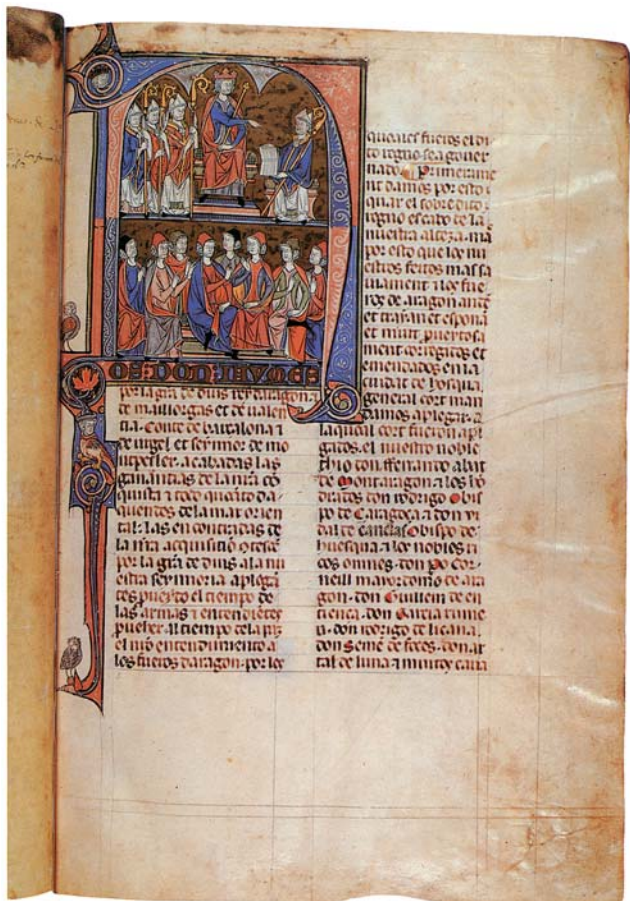 OS DON JAYMES
por la grã de dius rey daragon ⁊
de maillorgas et de ualen
cia. Conte de barcalona ⁊
de urgel. et seynnor de mo
ntpesler. acabadas las
ganancias de la nrã co
quista ⁊ todo quanto da
quentes de la mar orien
tal. las encontradas de
la nrã acquisitiõ
por la grã de dius ala nu
estra seynnoria aplega
tes pueyto el tiempo de
las armas ⁊
al tiempo dela paz
el nrõ entendimiento a
les fueros daragon. por los
quales fueros el di
to regno sea gouer
nado. Primerame
nt damos por esto
quar el sobredito
regno es cabo de la
nuestra alteza. ma
por esto que los nu
estros feitos mas sa
uiament ⁊ los fue
ros de aragon ante
et trayan et esponã
et muit
ment corregitos et
emendados en la
ciudat de hosqua
general cort man
damos aplegar. A
la qual cort fueron apl
egados. el nuestro noble
thio don fferando abat
de Montaragon ⁊ los hõ
drados don rodrigo Obis
po de Caragoça ⁊ don vi
dal de canelas Obispo de
huesqua ⁊ los nobles ri
cos omnes. don Pº Cor
neill mayordomo de ara
gon. don Guillem de en
tienca. don Garcia rume
u. don rodrigo de licana.
don Semé de foces. don ar
tal de luna ⁊ muitos caua